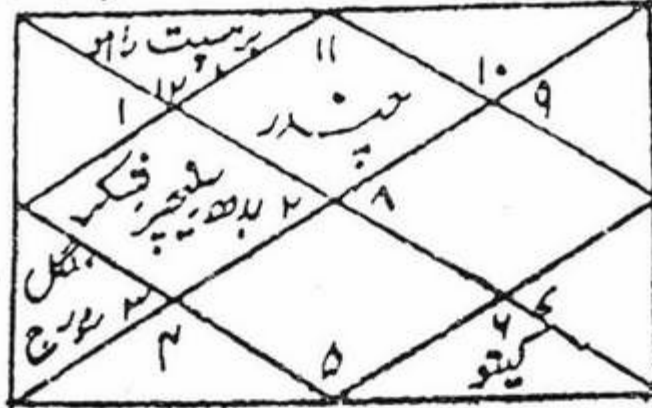 برہسپت راہو ۱۲
۱۱
چندر
۱۰
۹
۱
بدھ سنیچر شکر ۲
۸
منگل
سورج ۳
۴
۵
۶
کیتو
۷